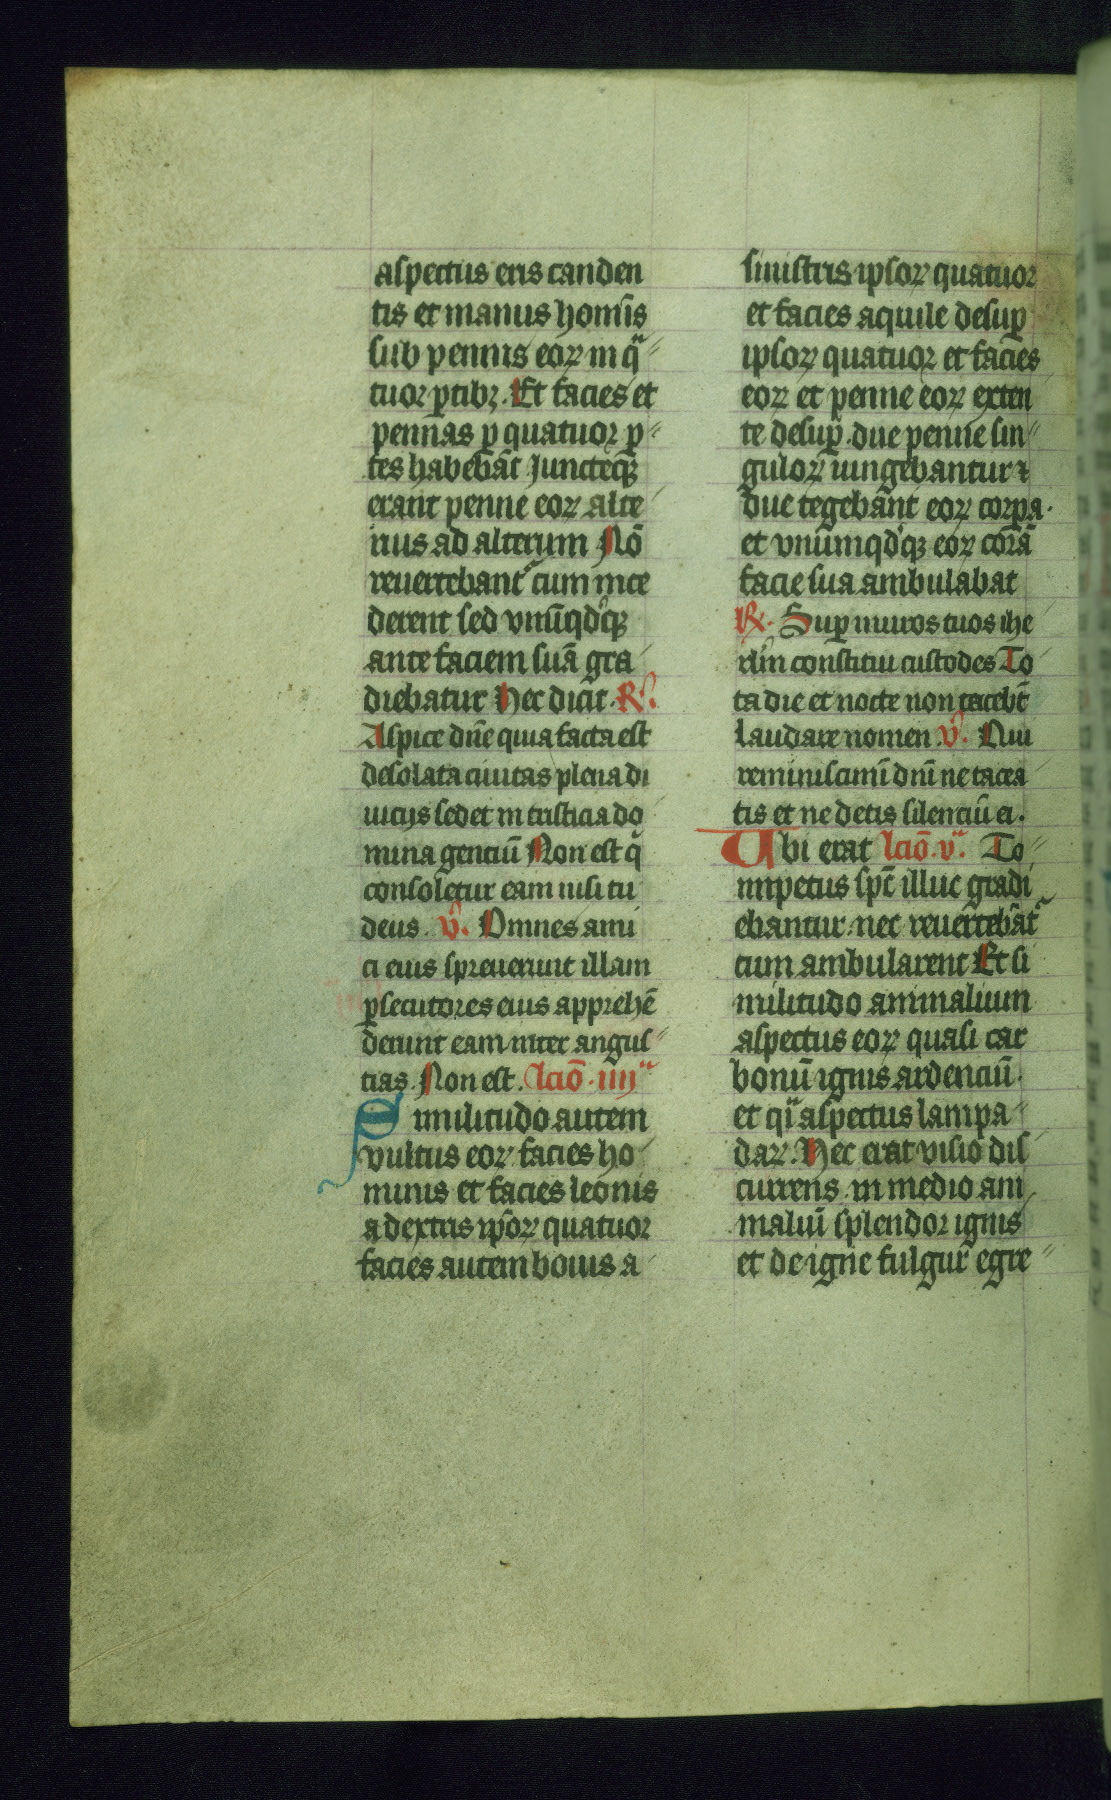 aspectus eris canden
tis et manus homīs
sub pennis eoꝝ in qᵃ
tuor ꝑtibꝫ. Et facies et
pennas ꝑ quatuor ꝑ
tes habebāt Juncteqꝫ
erant penne eoꝝ alte
rius ad alterum Nō
reuertebant᷑ cum ince
derent sed vnūqdꝗꝫ
ante faciem suā gra
diebatur Hec dicit. R᷒.
Aspice dn̄e quia facta est
desolata ciuitas plena di
uicijs sedet in tristicia do
mina genciū Non est q̄
consoletur eam nisi tu
deus. v᷒. Omnes ami
ci eius spreuerunt illam
ꝑsecutores eius apprehē
derunt eam inter angus
tias. Non est. lcīo. iiijᵃ
Similitudo autem
vultus eoꝝ facies ho
minis et facies leonis
a dextris ip̄soꝝ quatuor
facies autem bouis a
sinistris ipsoꝝ quatuor
et facies aquile desuꝑ
ipsoꝝ quatuor et facies
eoꝝ et penne eoꝝ exten
te desuꝑ. due penne sin
guloꝝ iungebantur ⁊
due tegebant eoꝝ corꝑa.
et vnūmqdꝗꝫ eoꝝ corā
facie sua ambulabat
R᷒. Suꝑ muros tuos ihe
rlm̄ constitui custodes To
ta die et nocte non tacebt̄
laudare nomen. v᷒. Qui
reminiscimī dn̄i ne tacea
tis et ne detis silenciū ei.
Ubi erat lcīo. vᵃ. To
impetus spc̄ illuc gradi
ebantur nec reuertebāt᷑
cum ambularent Et si
militudo animalium
aspectus eoꝝ quasi car
bonū ignis ardenciū.
et qᵃi aspectus lampa
daꝝ. Hec erat visio dis
currens in medio ani
maliū splendor ignis
et de igne fulgur egre